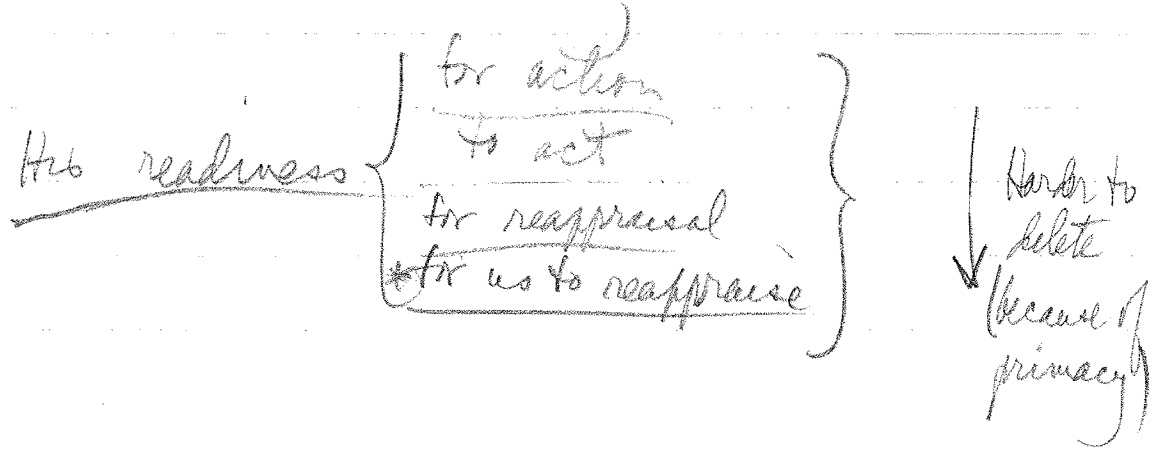 His readiness
for action
to act
for reappraisal
*for us to reappraise
Harder to
delete
(because of
primacy)